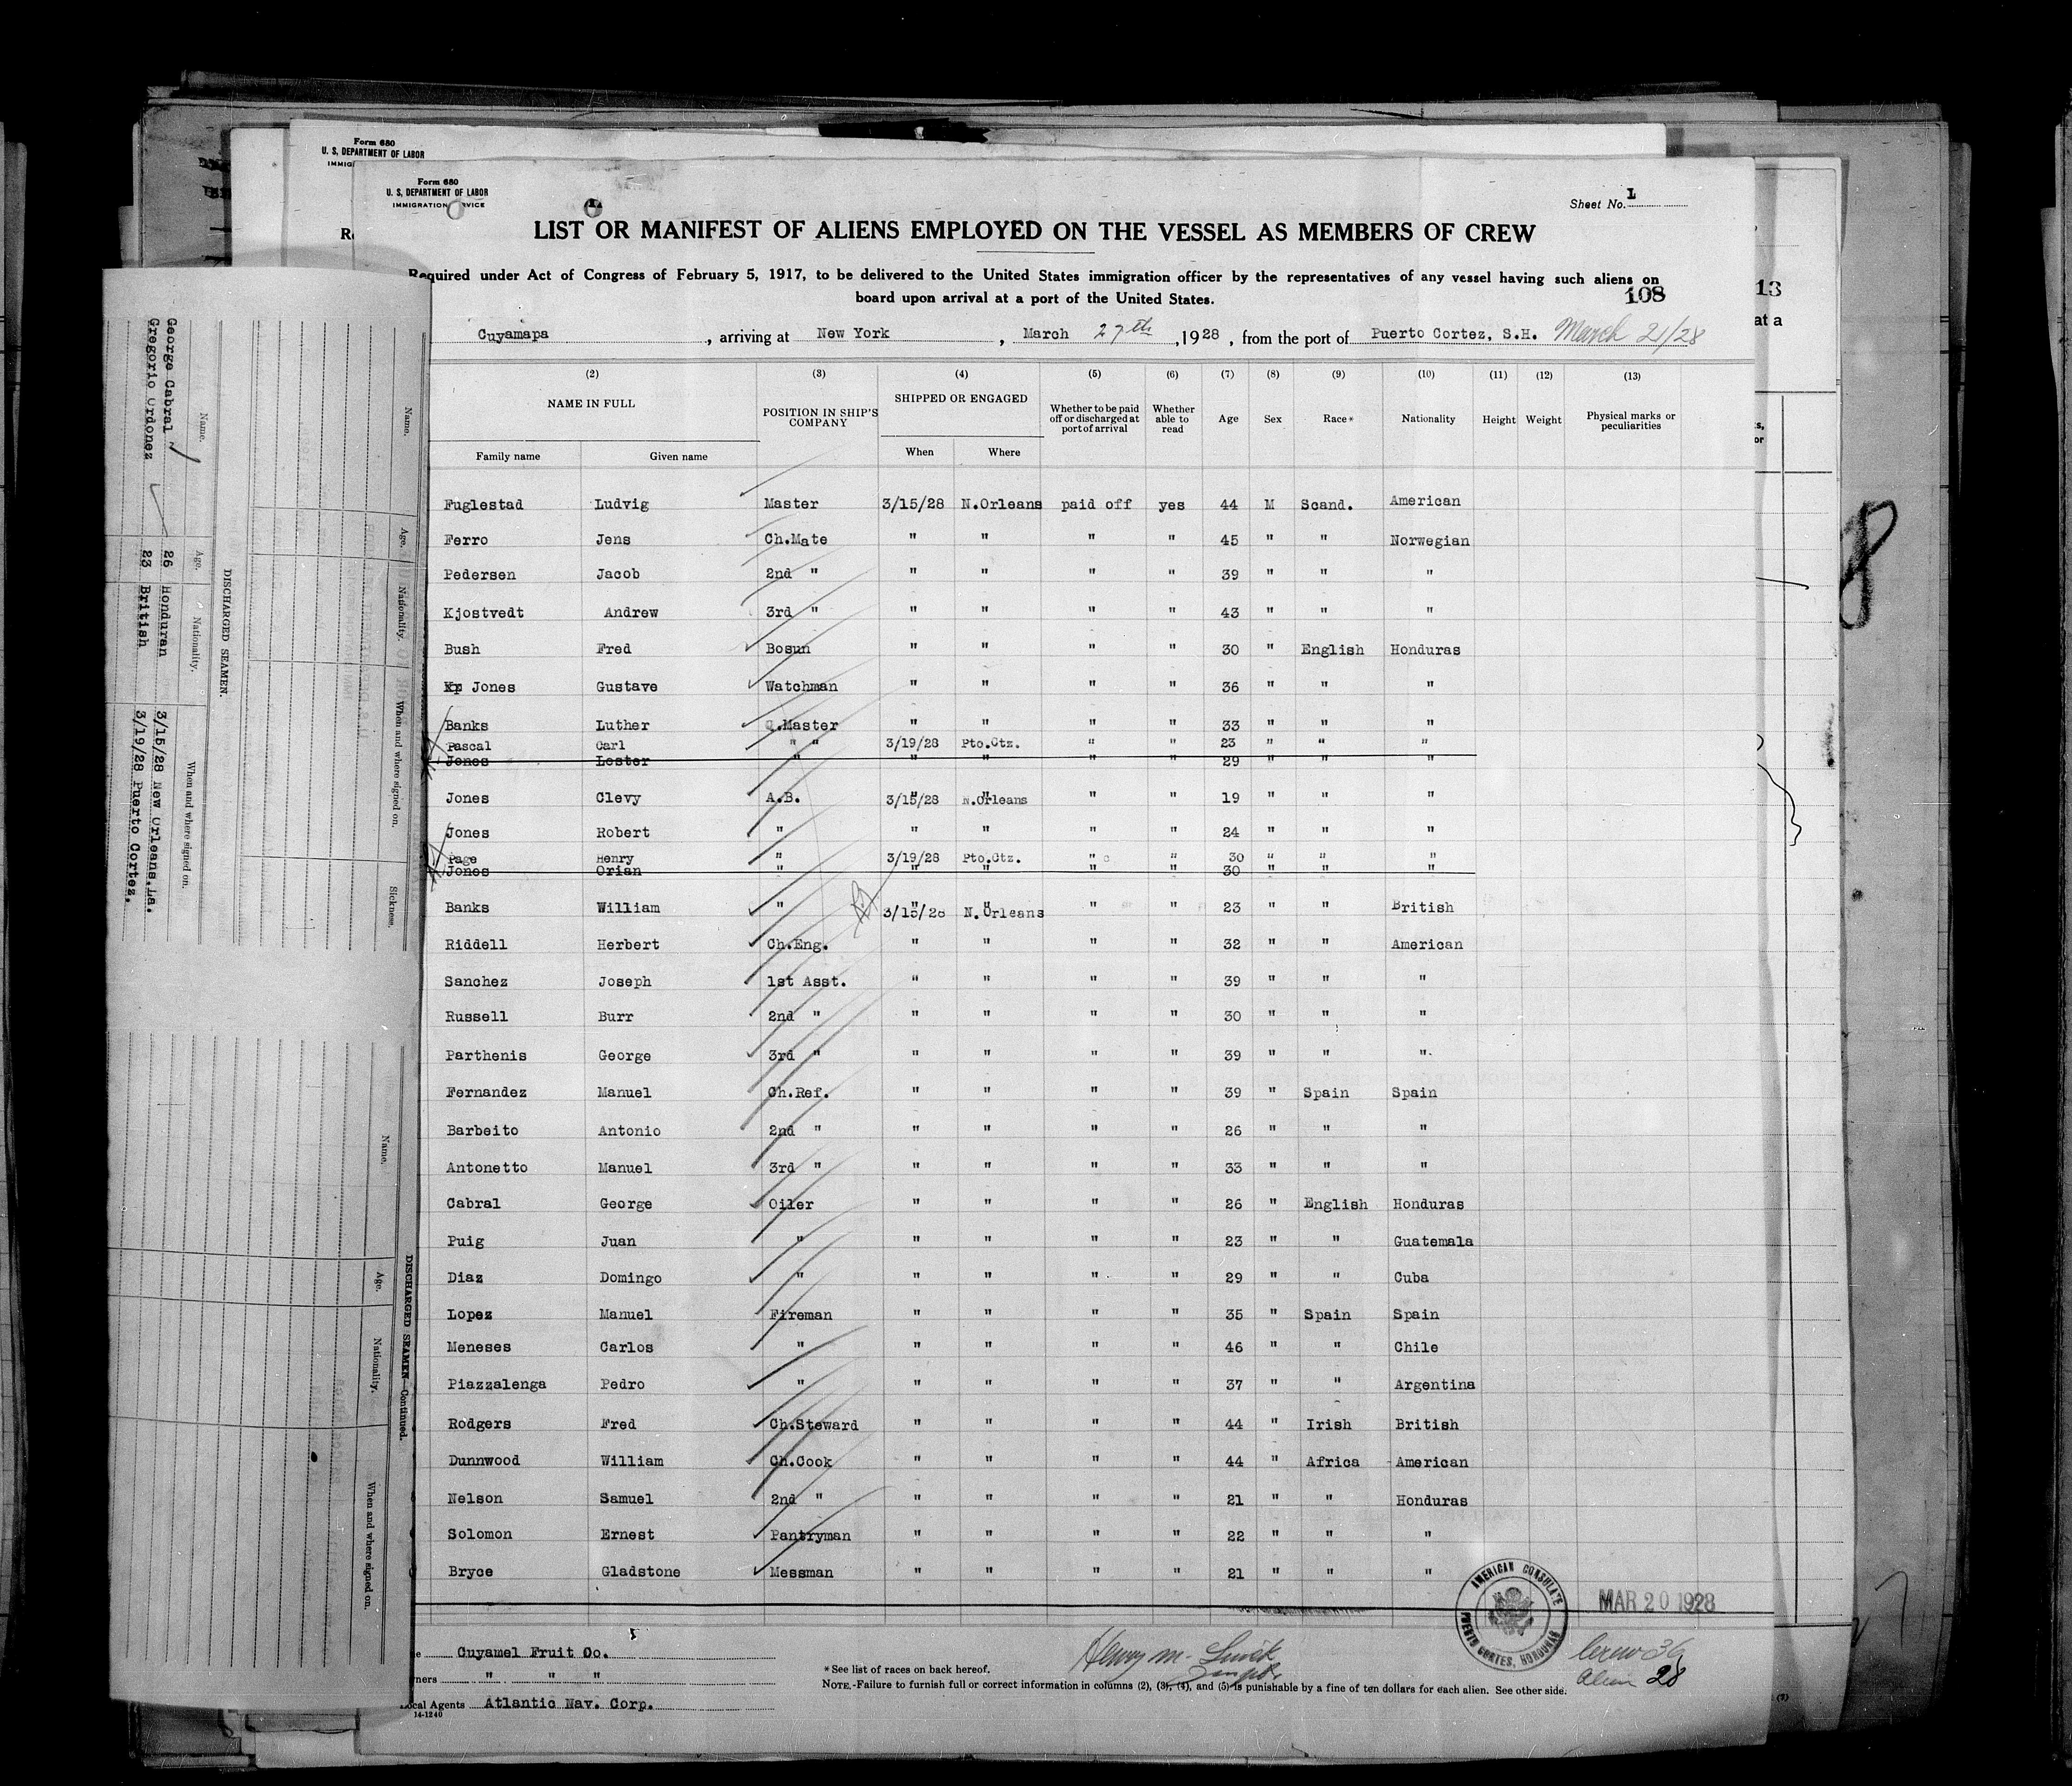 Form 680
U. S. DEPARTMENT OF LABOR
Form 680
U. S. DEPARTMENT OF LABOR
IMMIGRATION SERVICE
Sheet No. L
LIST OR MANIFEST OF ALIENS EMPLOYED ON THE VESSEL AS MEMBERS OF CREW
Required under Act of Congress of February 5, 1917, to be delivered to the United States immigration officer by the representatives of any vessel having such aliens on
board upon arrival at a port of the United States.
108
13
at a
Cuyamapa, arriving at New York, March 27th, 1928, from the port of Puerto Cortez, S.H. March 21/28
(2) (3) (4) (5) (6) (7) (8) (9) (10) (11) (12) (13)
NAME IN FULL POSITION IN SHIP'S COMPANY SHIPPED OR ENGAGED Whether to be paid off or discharged at port of arrival Whether able to read Age Sex Race* Nationality Height Weight Physical marks or peculiarities
Family name Given name When Where
Fuglestad Ludvig Master 3/15/28 N.Orleans paid off yes 44 M Scand. American
Ferro Jens Ch.Mate " " " " 45 " " Norwegian
Pedersen Jacob 2nd " " " " " 39 " " "
Kjostvedt Andrew 3rd " " " " " 43 " " "
Bush Fred Bosun " " " " 30 " English Honduras
Jones Gustave Watchman " " " " 36 " " "
Banks Luther Q.Master " " " " 33 " " "
Pascal Carl " " 3/19/28 Pto.Ctz. " " 23 " " "
Jones Lester " " " 29 " " "
Jones Clevy A.B. 3/15/28 N.Orleans " " 19 " " "
Jones Robert " " " " " 24 " " "
Page Henry " 3/19/28 Pto.Ctz. " " 30 " " "
Jones Orian " " " " " 30 " " "
Banks William " 3/15/28 N.Orleans " " 23 " " British
Riddell Herbert Ch.Eng. " " " " 32 " " American
Sanchez Joseph 1st Asst. " " " " 39 " " "
Russell Burr 2nd " " " " " 30 " " "
Parthenis George 3rd " " " " " 39 " " "
Fernandez Manuel Ch.Ref. " " " " 39 " Spain Spain
Barbeito Antonio 2nd " " " " " 26 " " "
Antonetto Manuel 3rd " " " " " 33 " " "
Cabral George Oiler " " " " 26 " English Honduras
Puig Juan " " " " " 23 " " Guatemala
Diaz Domingo " " " " " 29 " " Cuba
Lopez Manuel Fireman " " " " 35 " Spain Spain
Meneses Carlos " " " " " 46 " " Chile
Piazzalenga Pedro " " " " " 37 " " Argentina
Rodgers Fred Ch.Steward " " " " 44 " Irish British
Dunnwood William Ch.Cook " " " " 44 " Africa American
Nelson Samuel 2nd " " " " " 21 " " Honduras
Solomon Ernest Pantryman " " " " 22 " " "
Bryce Gladstone Messman " " " " 21 " " "
AMERICAN CONSULATE
PUERTO CORTES, HONDURAS
MAR 20 1928
Cuyamel Fruit Co.
" " "
Local Agents Atlantic Nav. Corp.
14-1240
Henry M.
*See list of races on back hereof.
NOTE.-Failure to furnish full or correct information in columns (2), (3), (4), and (5) is punishable by a fine of ten dollars for each alien. See other side.
Crew 36
Alien 28
DISCHARGED SEAMEN.
Name. Age. Nationality. When and where signed on.
George Cabral 26 Honduran 3/15/28 New Orleans.La.
Gregorio Ordonez 23 British 3/19/28 Puerto Cortez.
Name. Age. Nationality. When and where signed on. Sickness.
DISCHARGED SEAMEN—Continued.
Name. Age. Nationality. When and where signed on.
8